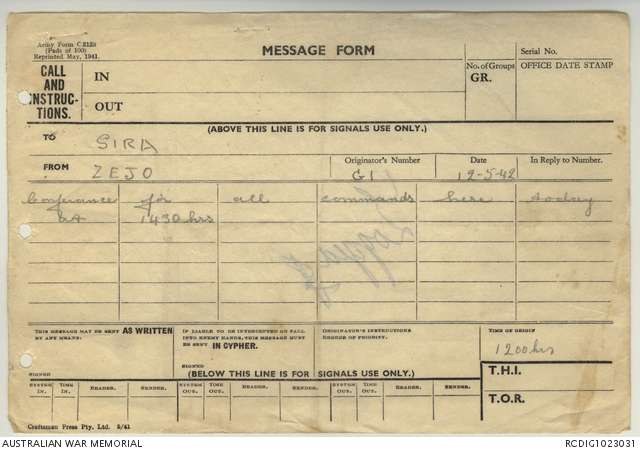 Army Form C.2128
(Pads of 100)
Reprinted May, 1941.
MESSAGE FORM
Serial No.
CALL
AND
INSTRUC-
TIONS.
IN
No. of Groups
GR.
OFFICE DATE STAMP
OUT
(ABOVE THIS LINE IS FOR SIGNALS USE ONLY.)
TO SIRA
FROM ZEJO
Originator's Number G1
Date 12-5-42
In Reply to Number.
Conference for all commands here today
at 1430 hrs
THIS MESSAGE MAY BE SENT AS WRITTEN
BY ANY MEANS:
SIGNED
IF LIABLE TO BE INTERCEPTED OR FALL
INTO ENEMY HANDS, THIS MESSAGE MUST
BE SENT IN CYPHER.
SIGNED
ORIGINATOR'S INSTRUCTIONS
DEGREE OF PRIORITY.
TIME OF ORIGIN
1200 hrs
(BELOW THIS LINE IS FOR SIGNALS USE ONLY.)
T.H.I.
SYSTEM IN. TIME IN. READER. SENDER. SYSTEM OUT. TIME OUT. READER. SENDER. SYSTEM OUT. TIME OUT. READER. SENDER.
T.O.R.
Craftsman Press Pty. Ltd. 5/41
AUSTRALIAN WAR MEMORIAL
RCDIG1023031